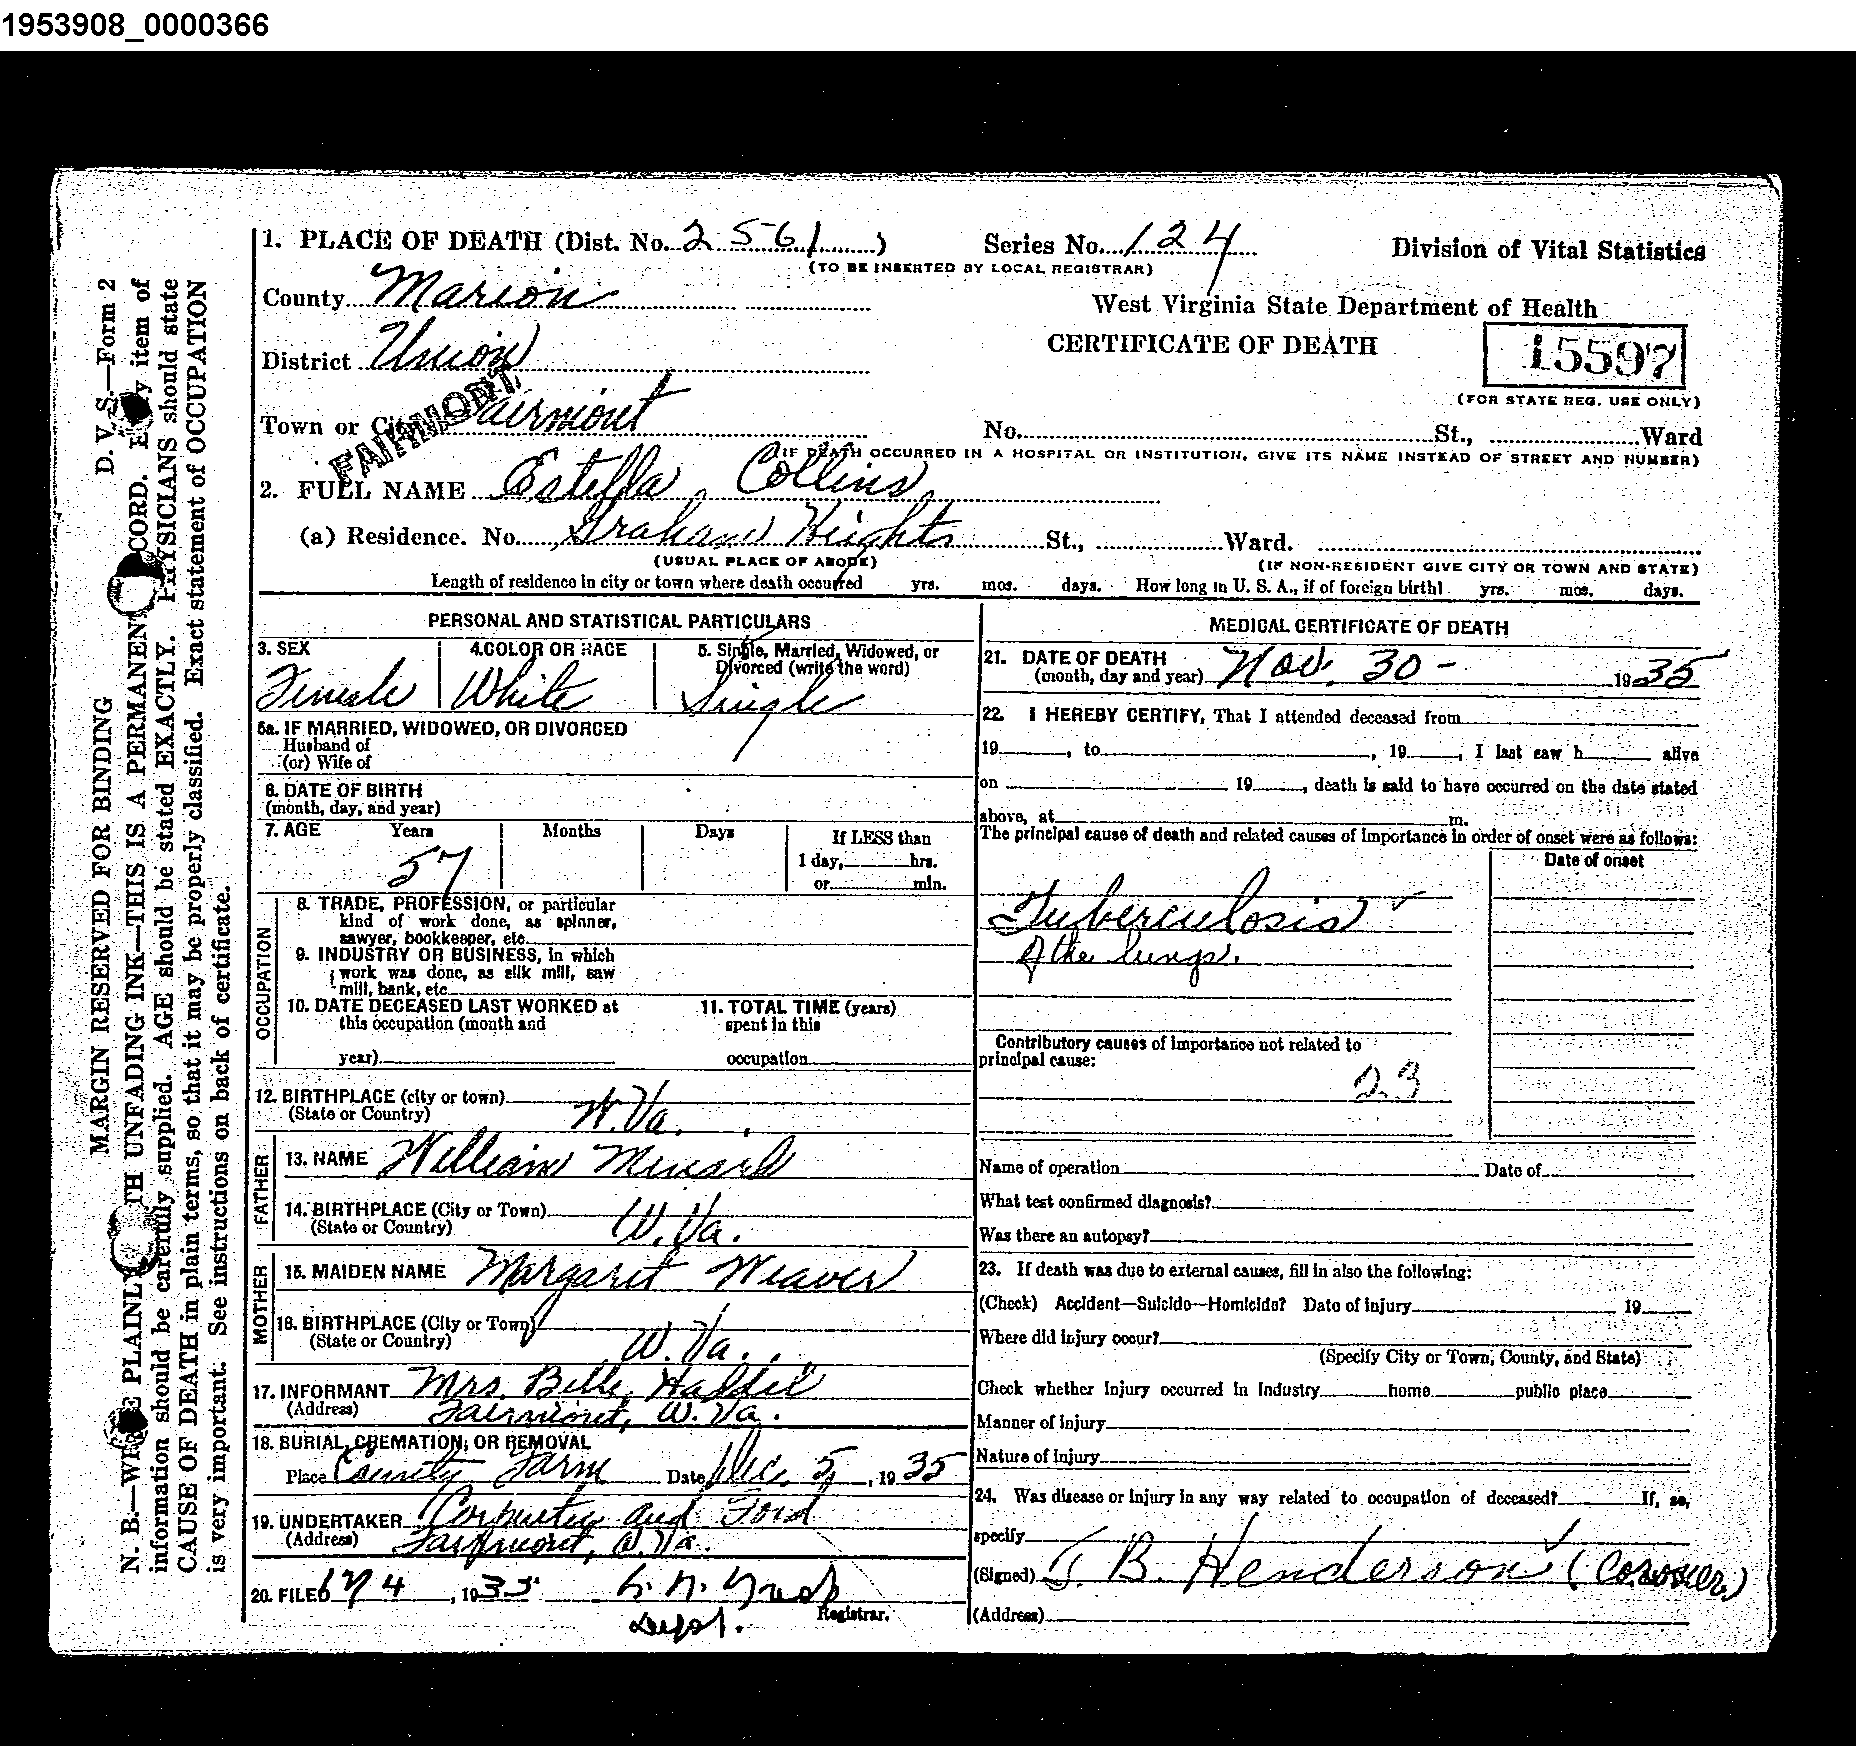 1953908_0000366
1. PLACE OF DEATH (Dist. No. 2561) Series No. 124 Division of Vital Statistics
(TO BE INSERTED BY LOCAL REGISTRAR)
County Marion
West Virginia State Department of Health
District Union
CERTIFICATE OF DEATH
15597
(FOR STATE REG. USE ONLY)
Town or City Fairmont No. St., Ward
FAIRMONT,
(IF DEATH OCCURRED IN A HOSPITAL OR INSTITUTION, GIVE ITS NAME INSTEAD OF STREET AND NUMBER)
2. FULL NAME Estella Collins
(a) Residence. No. Graham Heights St., Ward.
(USUAL PLACE OF ABODE) (IF NON-RESIDENT GIVE CITY OR TOWN AND STATE)
Length of residence in city or town where death occurred yrs. mos. days. How long in U. S. A., if of foreign birth? yrs. mos. days.
PERSONAL AND STATISTICAL PARTICULARS
3. SEX 4. COLOR OR RACE 5. Single, Married, Widowed, or
Divorced (write the word)
Female White Single
5a. IF MARRIED, WIDOWED, OR DIVORCED
Husband of
(or) Wife of
6. DATE OF BIRTH
(month, day, and year)
7. AGE Years Months Days If LESS than
57 1 day, hrs.
or min.
OCCUPATION
8. TRADE, PROFESSION, or particular
kind of work done, as spinner,
sawyer, bookkeeper, etc.
9. INDUSTRY OR BUSINESS, in which
work was done, as silk mill, saw
mill, bank, etc.
10. DATE DECEASED LAST WORKED at 11. TOTAL TIME (years)
this occupation (month and spent in this
year) occupation
12. BIRTHPLACE (city or town)
(State or Country) W. Va.
FATHER
13. NAME William
14. BIRTHPLACE (City or Town)
(State or Country) W. Va.
MOTHER
15. MAIDEN NAME Margaret Weaver
16. BIRTHPLACE (City or Town)
(State or Country) W. Va.
17. INFORMANT Mrs. Belle
(Address) Fairmont, W. Va.
18. BURIAL, CREMATION, OR REMOVAL
Place County Farm Date Dec. 5, 1935
19. UNDERTAKER Carpenter and Ford
(Address) Fairmont, W. Va.
20. FILED 12/4, 1935
Registrar.
Dept.
MEDICAL CERTIFICATE OF DEATH
21. DATE OF DEATH
(month, day and year) Nov. 30 - 1935
22. I HEREBY CERTIFY, That I attended deceased from
19 , to , 19 , I last saw h alive
on 19 , death is said to have occurred on the date stated
above, at m.
The principal cause of death and related causes of importance in order of onset were as follows:
Date of onset
Tuberculosis ✓
of the lungs.
Contributory causes of importance not related to
principal cause:
23
Name of operation Date of
What test confirmed diagnosis?
Was there an autopsy?
23. If death was due to external causes, fill in also the following:
(Check) Accident—Suicide—Homicide? Date of injury 19
Where did injury occur?
(Specify City or Town, County, and State)
Check whether injury occurred in industry home public place
Manner of injury
Nature of injury
24. Was disease or injury in any way related to occupation of deceased? If, so,
specify
(Signed) J. B. Henderson (Coroner)
(Address)
D. V. S.—Form 2
MARGIN RESERVED FOR BINDING
N. B.—WRITE PLAINLY WITH UNFADING INK—THIS IS A PERMANENT RECORD. Every item of
information should be carefully supplied. AGE should be stated EXACTLY. PHYSICIANS should state
CAUSE OF DEATH in plain terms, so that it may be properly classified. Exact statement of OCCUPATION
is very important. See instructions on back of certificate.